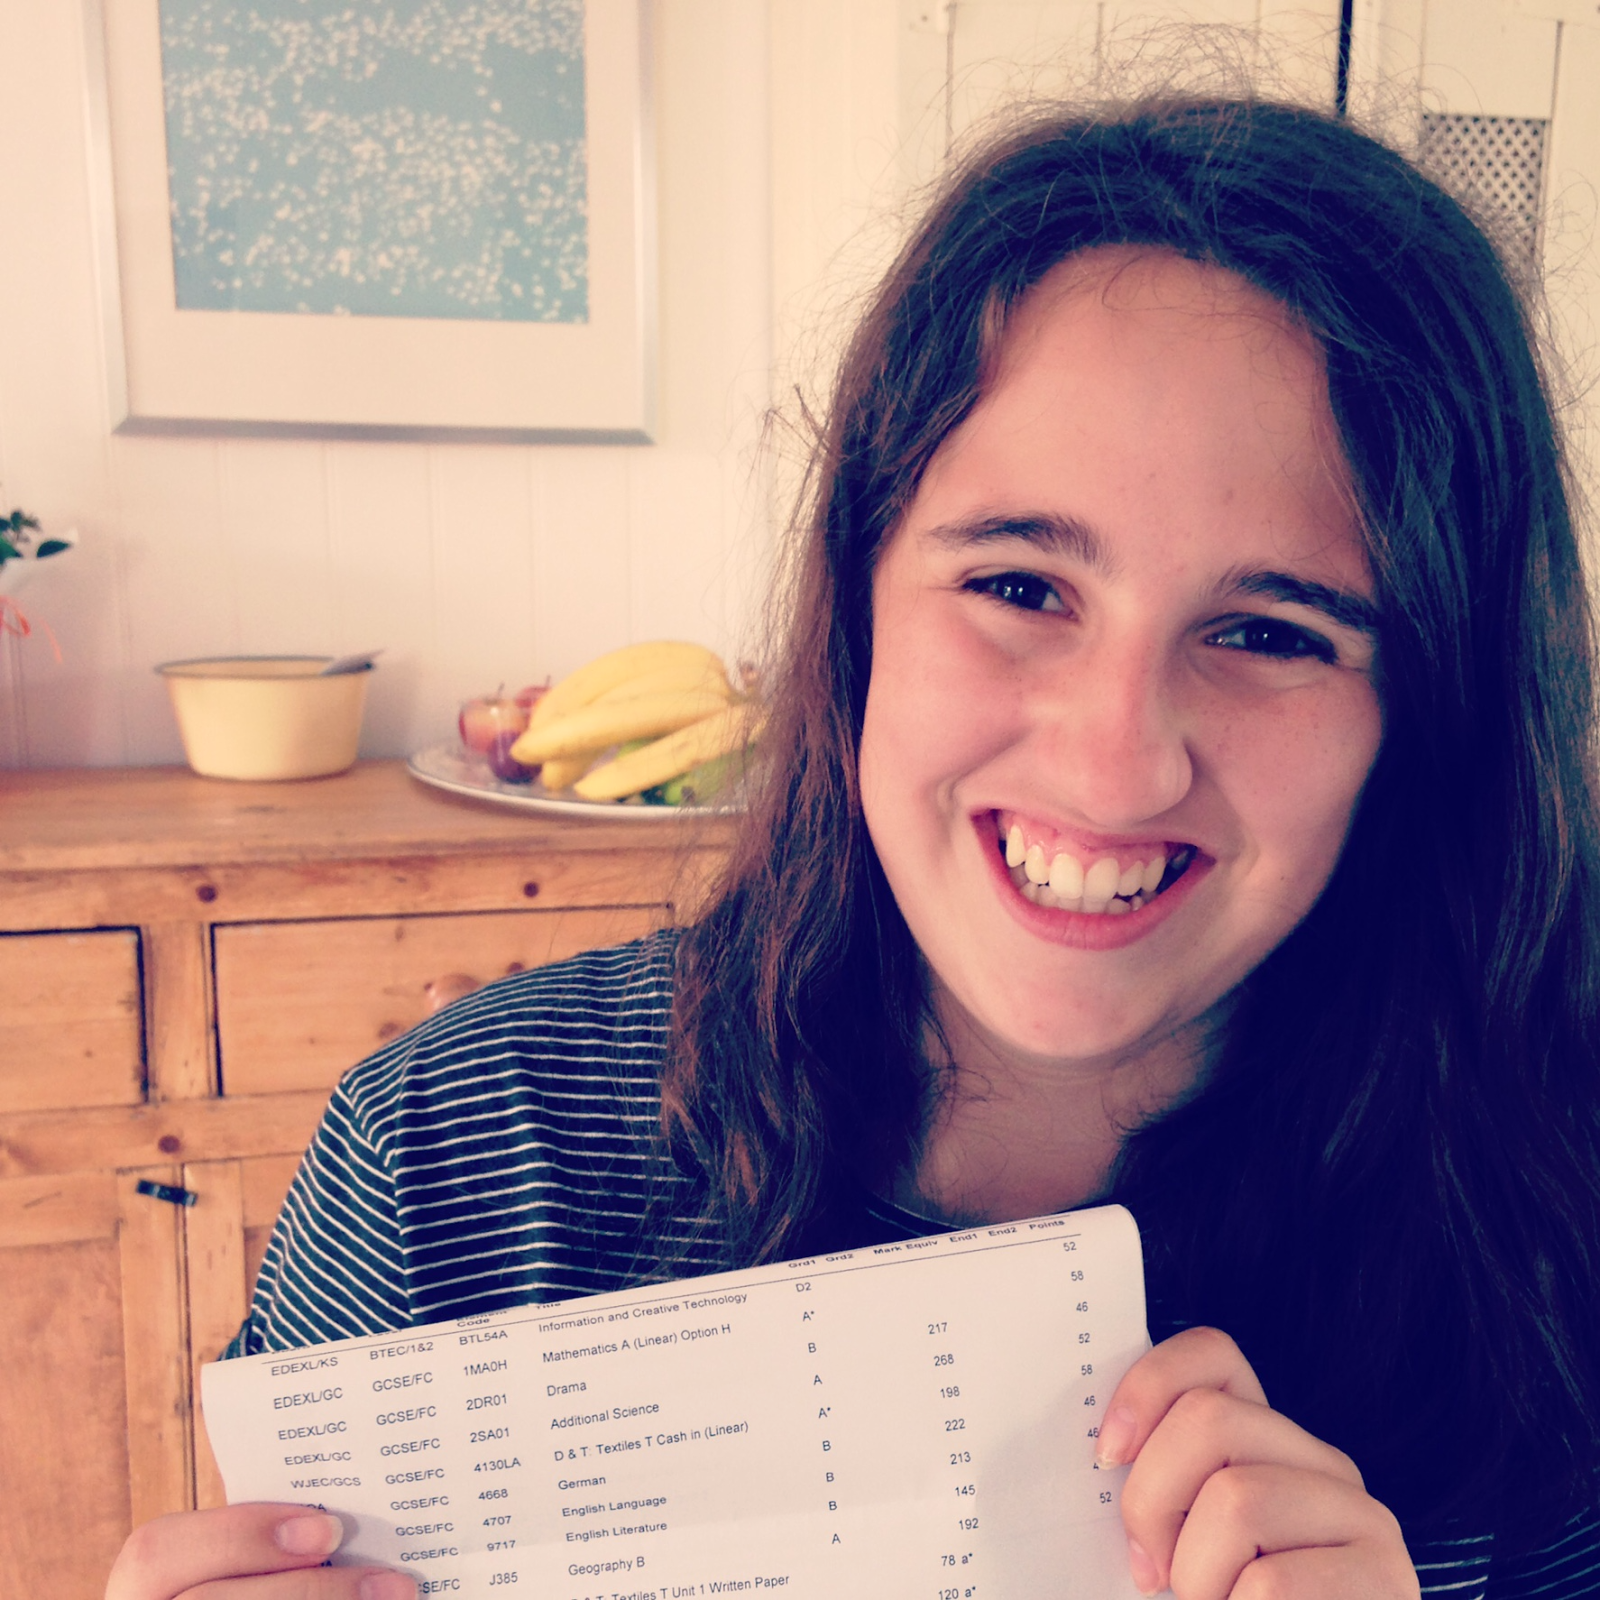 Code Title Grd1 Grd2 Mark Equiv End1 End2 Points
EDEXL/KS BTEC/1&2 BTL54A Information and Creative Technology D2 52
EDEXL/GC GCSE/FC 1MA0H Mathematics A (Linear) Option H A* 58
EDEXL/GC GCSE/FC 2DR01 Drama B 217 46
EDEXL/GC GCSE/FC 2SA01 Additional Science A 268 52
WJEC/GCS GCSE/FC 4130LA D & T: Textiles T Cash in (Linear) A* 198 58
GCSE/FC 4668 German B 222 46
GCSE/FC 4707 English Language B 213 46
GCSE/FC 9717 English Literature B 145
GCSE/FC J385 Geography B A 192 52
T: Textiles T Unit 1 Written Paper 78 a*
120 a*